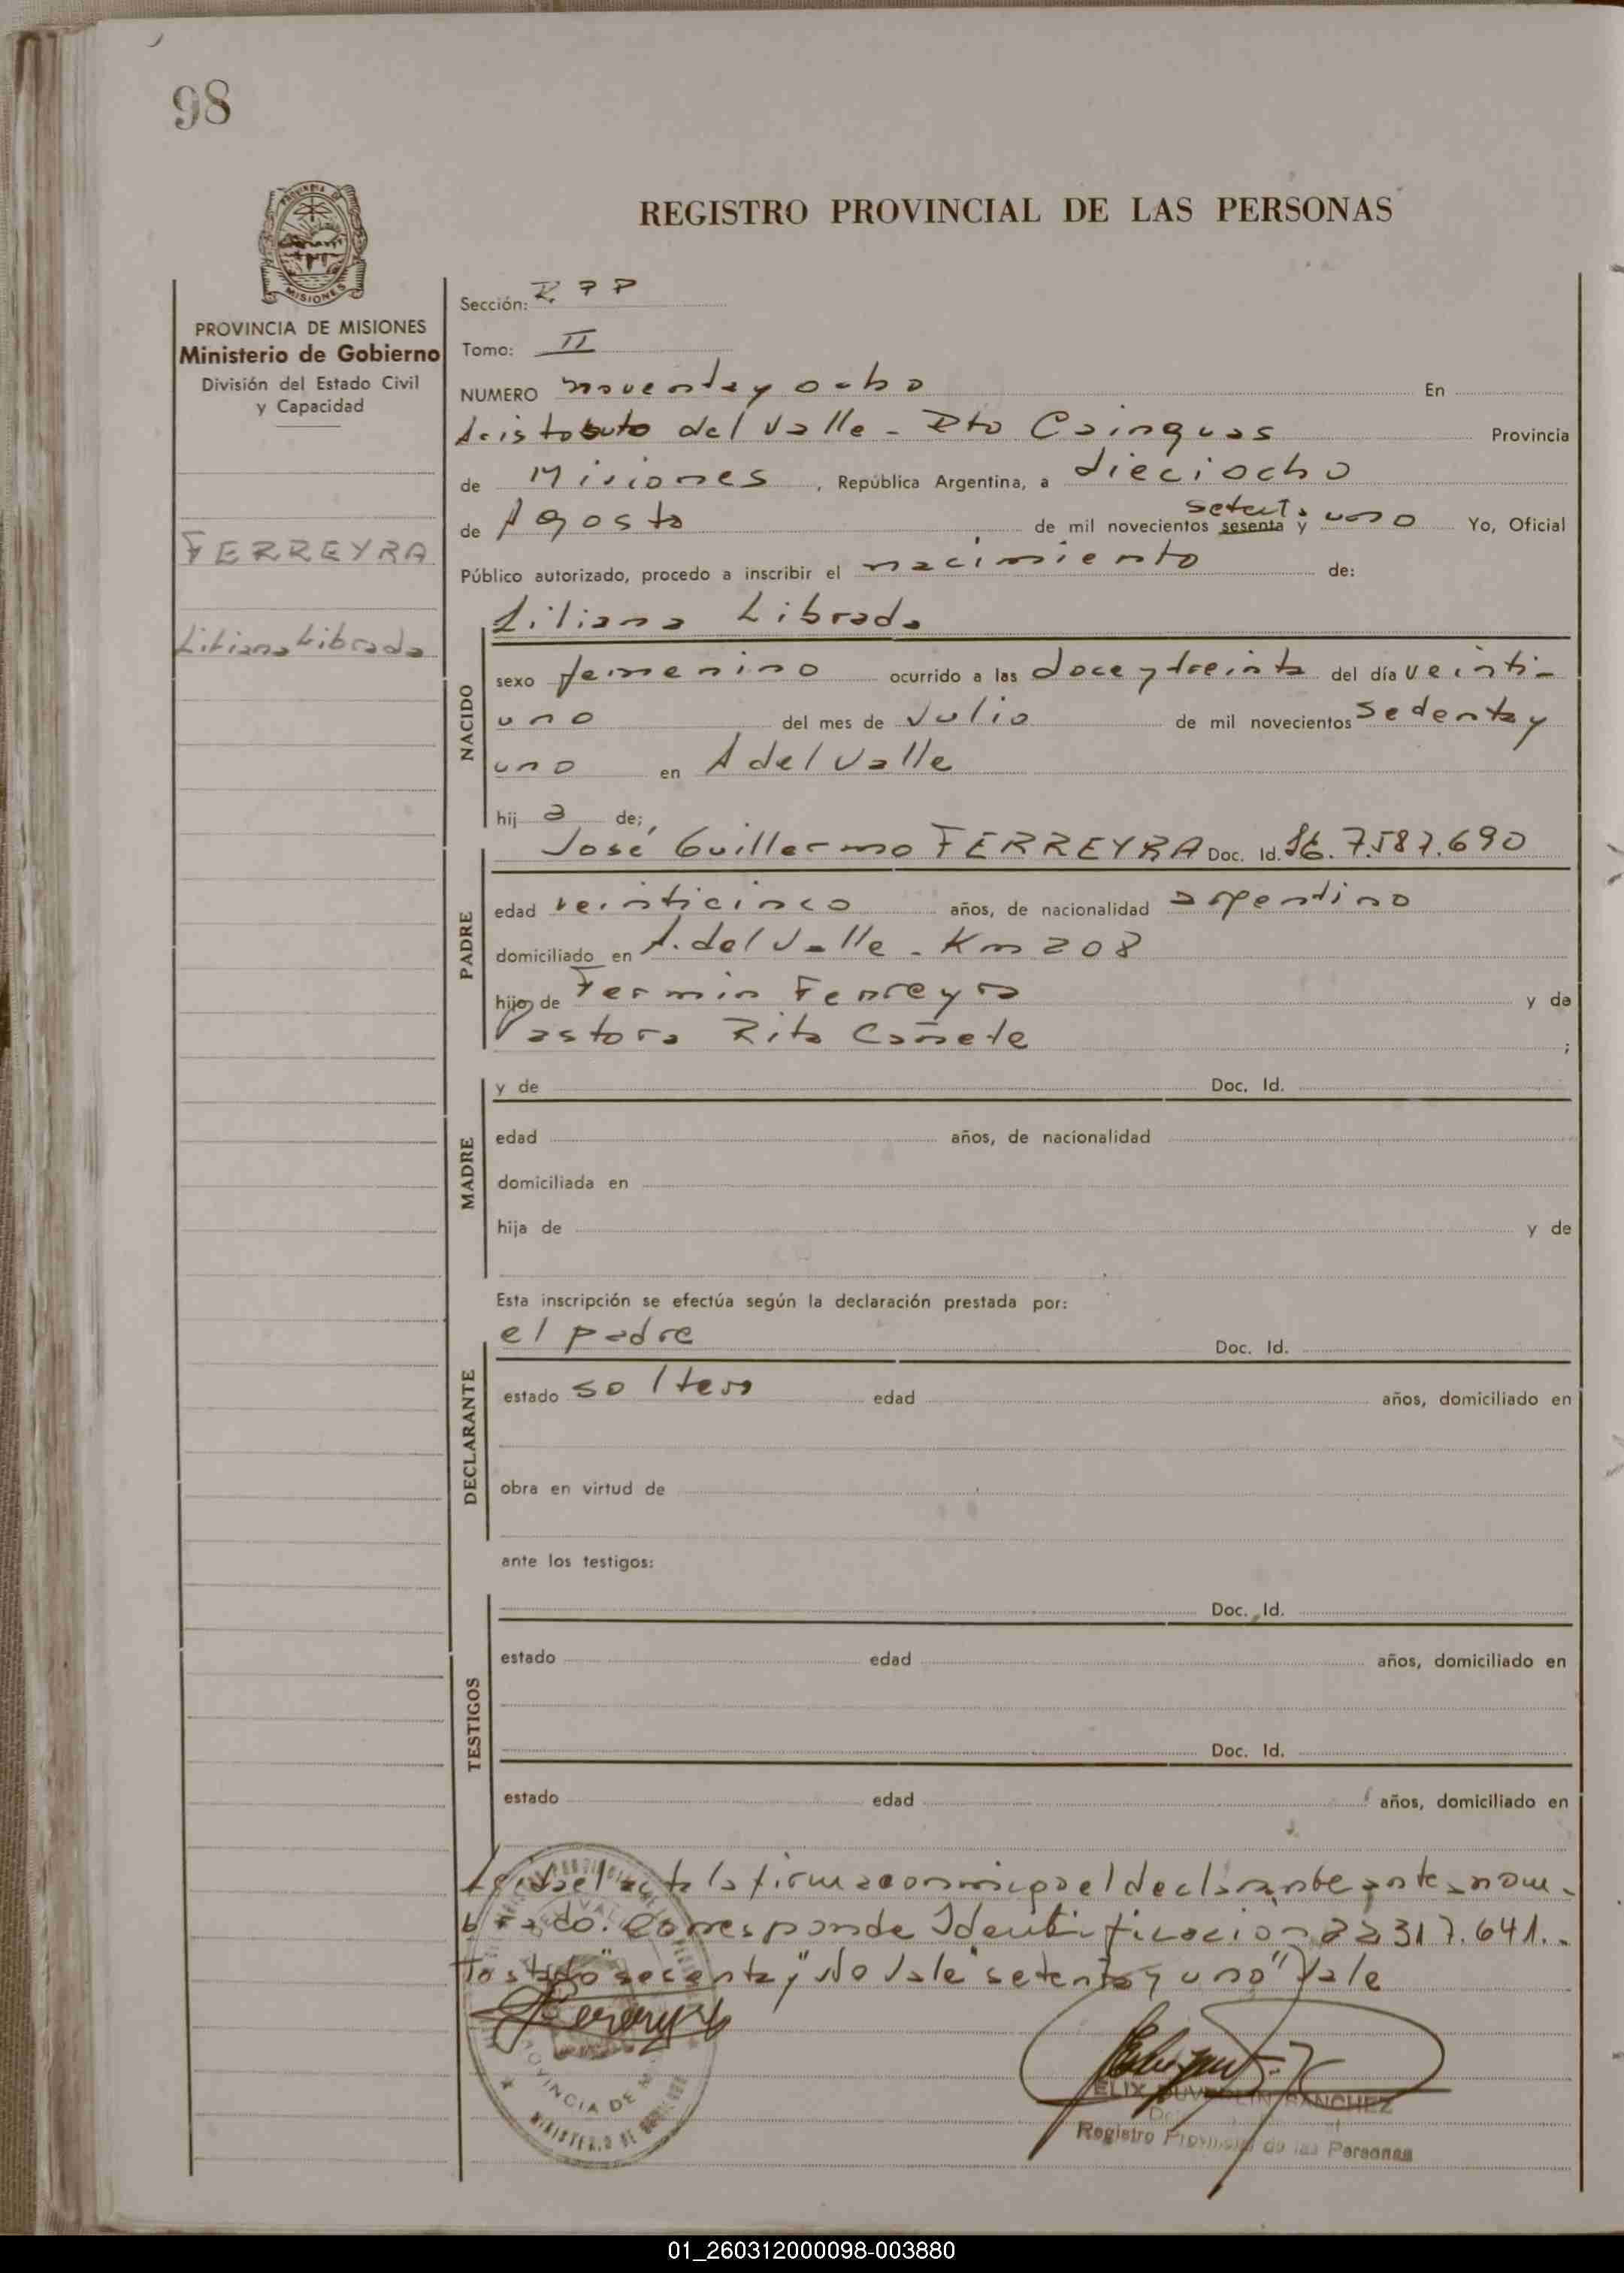 98
PROVINCIA DE
MISIONES
REGISTRO PROVINCIAL DE LAS PERSONAS
PROVINCIA DE MISIONES
Ministerio de Gobierno
División del Estado Civil
y Capacidad
FERREYRA
Liliana Librada
Sección: R P P
Tomo: II
NUMERO noventa y ocho En
Aristobulo del Valle - Dto Cainguas Provincia
de Misiones, República Argentina, a dieciocho
de Agosto de mil novecientos sesenta y setenta y uno Yo, Oficial
Público autorizado, procedo a inscribir el nacimiento de:
Liliana Librada
NACIDO
sexo femenino ocurrido a las doce y treinta del día veinti-
uno del mes de Julio de mil novecientos setenta y
uno en A del Valle
hija de;
PADRE
José Guillermo FERREYRA Doc. Id. 7.587.690
edad veinticinco años, de nacionalidad argentino
domiciliado en A. del Valle - Km 208
hijo de Fermin Ferreyra y de
Pastora Rita Cañete ;
MADRE
y de Doc. Id.
edad años, de nacionalidad
domiciliada en
hija de y de
Esta inscripción se efectúa según la declaración prestada por:
DECLARANTE
el padre Doc. Id.
estado soltero edad años, domiciliado en
obra en virtud de
ante los testigos:
TESTIGOS
Doc. Id.
estado edad años, domiciliado en
Doc. Id.
estado edad años, domiciliado en
Leida el acta la firma conmigo el declarante antenom-
brado. Corresponde Identificacion 22317.641.-
Testado "sesenta y" No Vale "setenta y uno" Vale
PROVINCIA DE
MINISTERIO DE GOBIERNO
SANCHEZ
Registro Provincial de las Personas
01_260312000098-003880